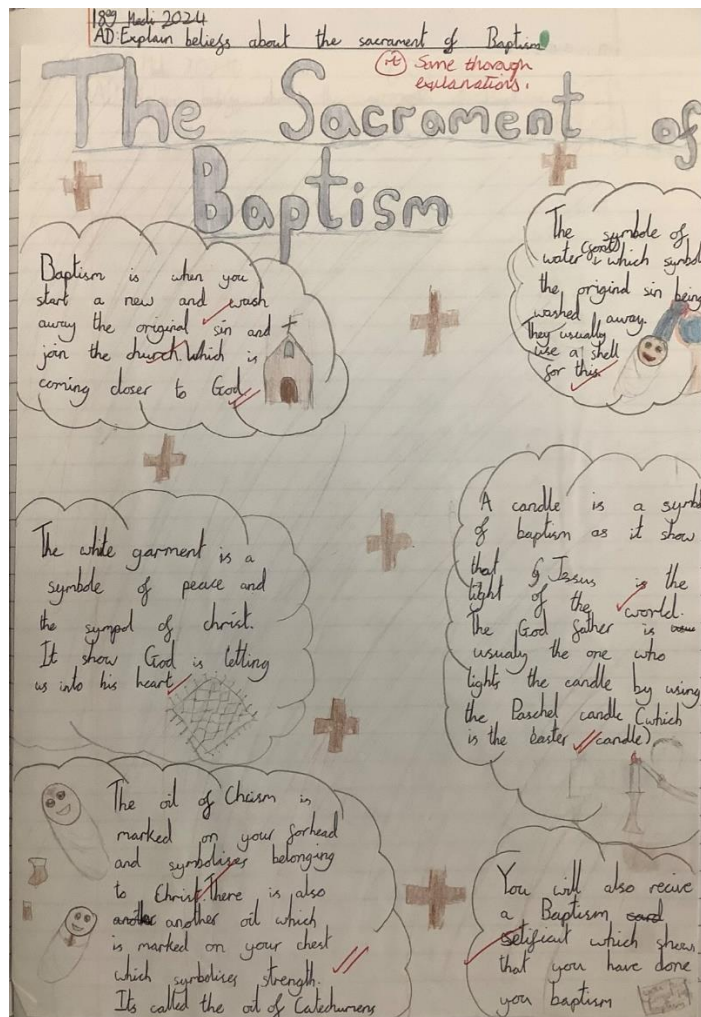 18fed Medi 2024
AD: Explain beliefs about the sacrament of Baptism
Some thorough
explanations.
The Sacrament of
Baptism
Baptism is when you
start a new and wash
away the original sin and
join the church. Which is
coming closer to God.
The symbole of
water (font) which symbol
the original sin being
washed away.
They usually
use a shell
for this.
The white garment is a
symbole of peace and
the sympol of christ.
It show God is letting
us into his heart
A candle is a symb
of baptism as it show
that Jesus is the
light of the world.
The God father is
usualy the one who
lights the candle by using
the Paschel candle (which
is the easter candle)
The oil of Chrism is
marked on your forhead
and symbolises belonging
to Christ. There is also
another oil which
is marked on your chest
which symbolises strength.
Its called the oil of Catechumens
You will also recive
a Baptism
setificat which shows
that you have done
you baptism